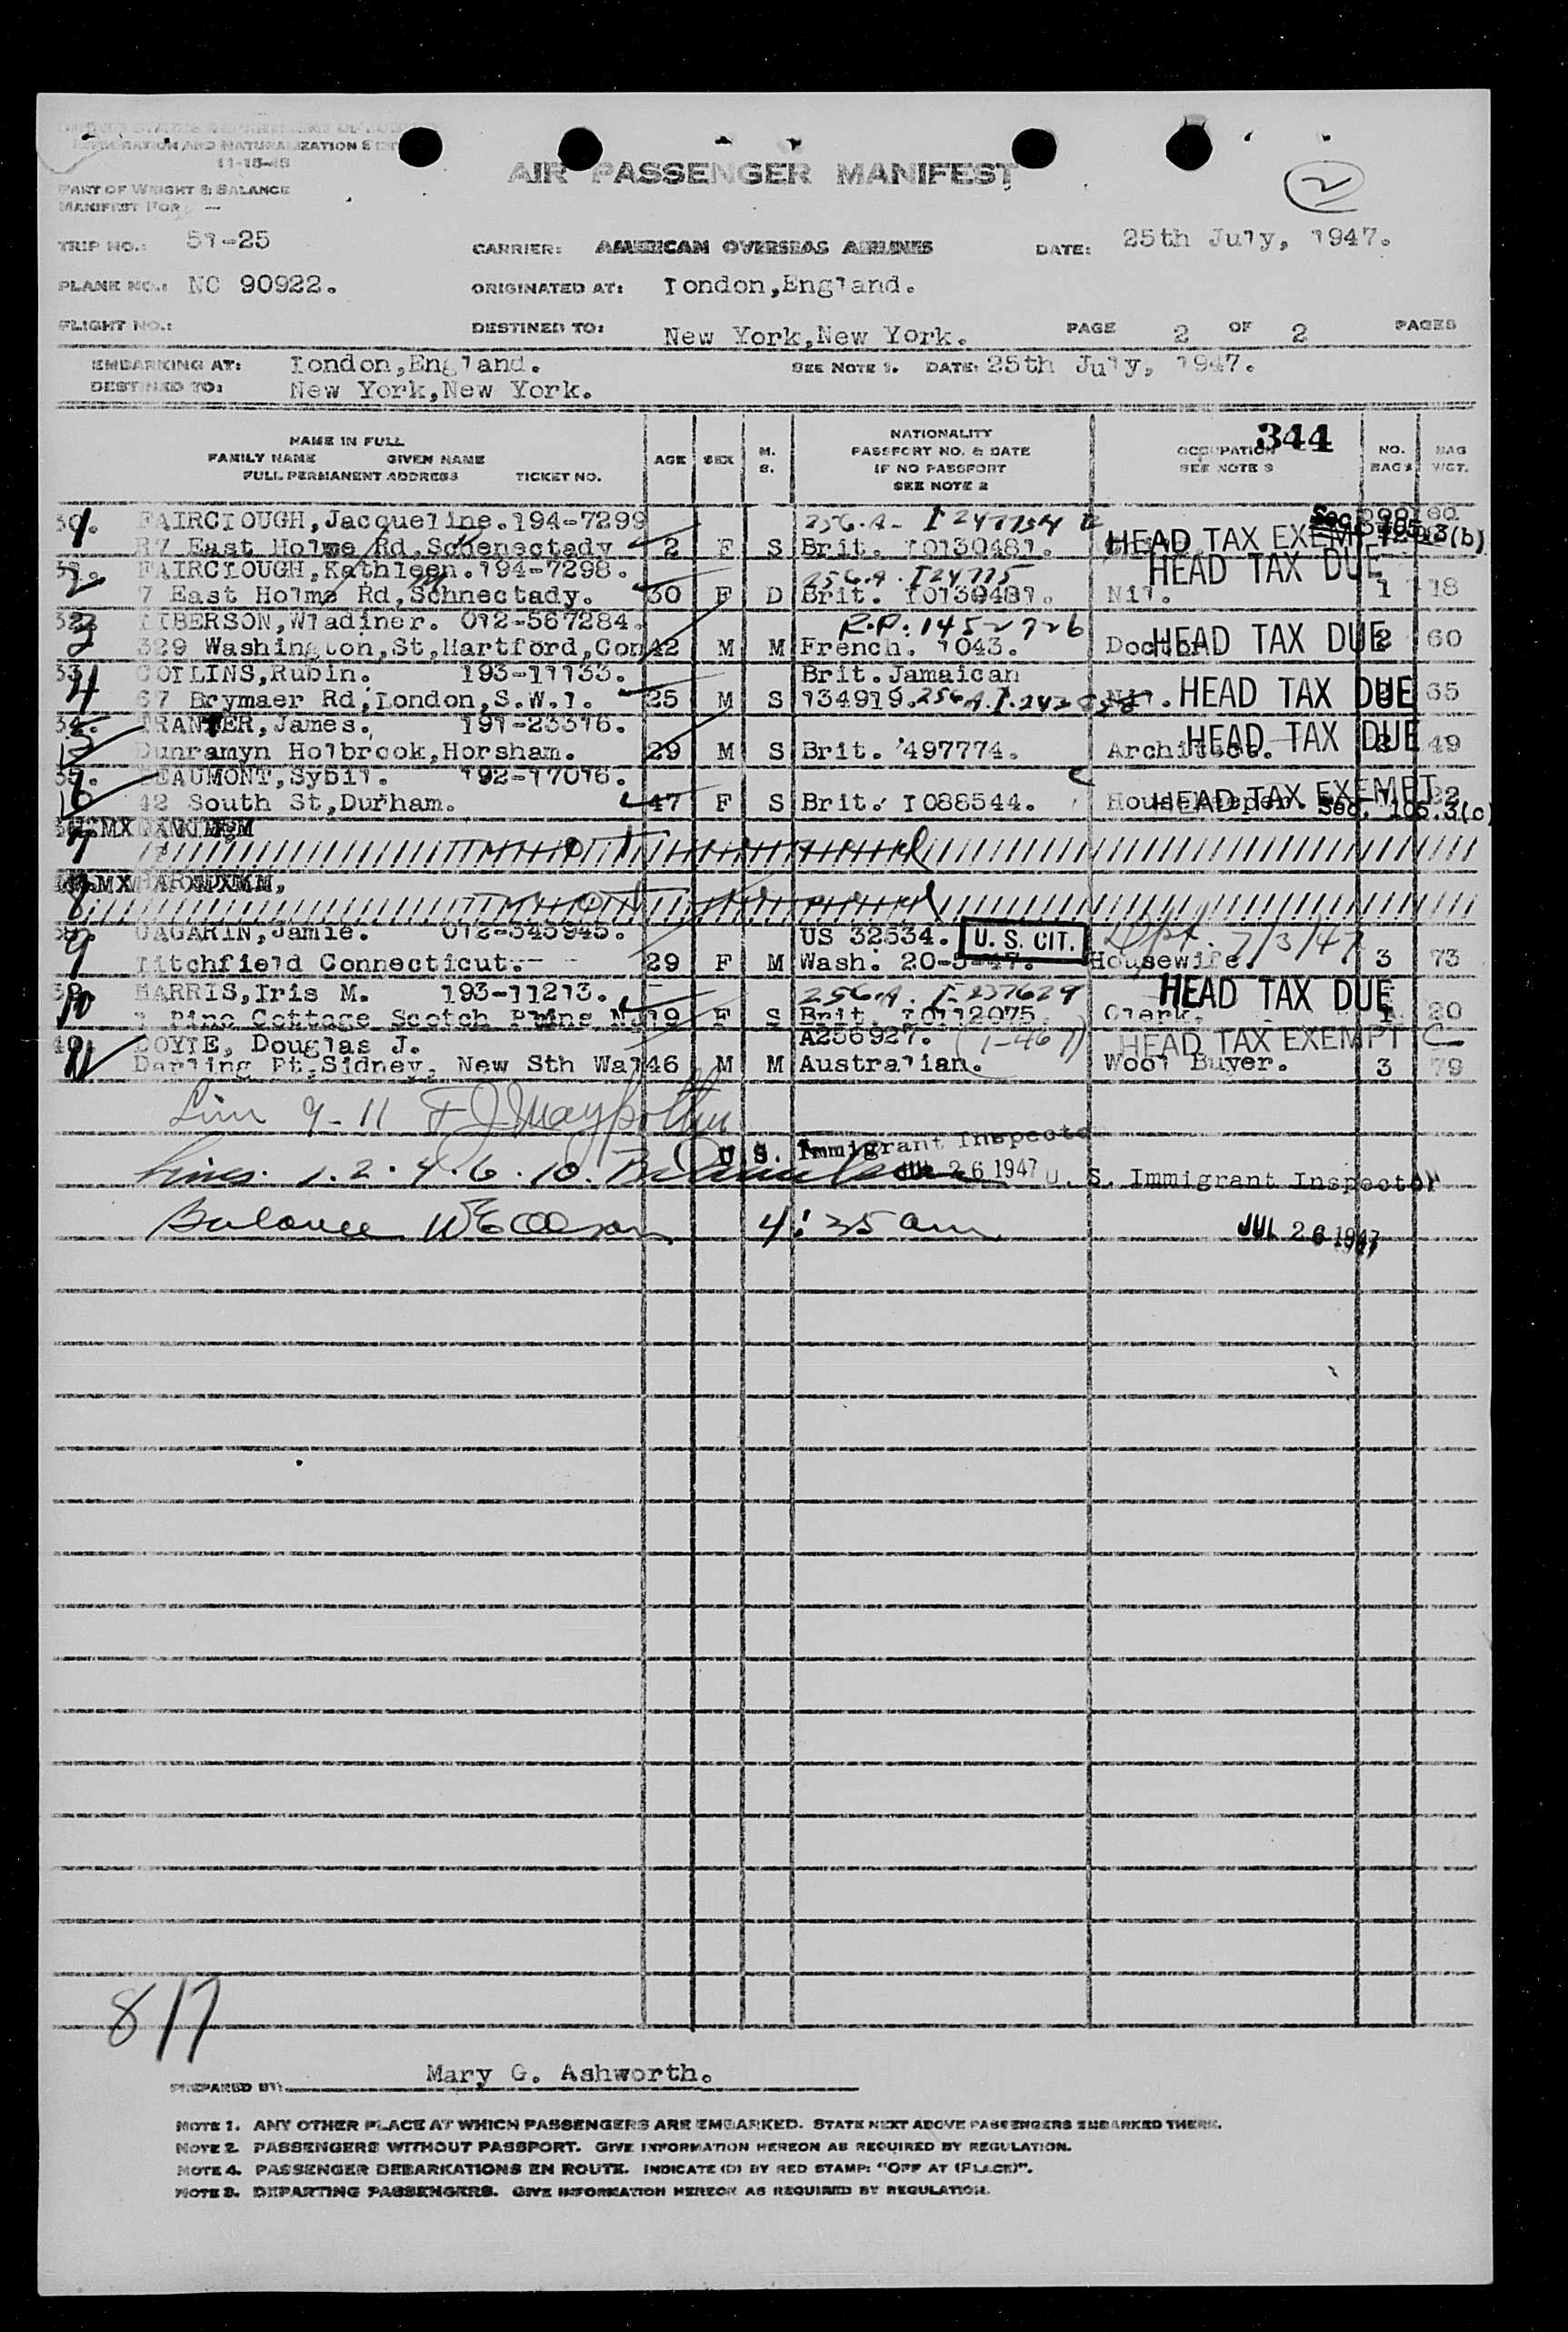 UNITED STATES DEPARTMENT OF JUSTICE
IMMIGRATION AND NATURALIZATION
11-15-46
PART OF WEIGHT & BALANCE
MANIFEST FOR
AIR PASSENGER MANIFEST
2
TRIP NO.: 51-25 CARRIER: AMERICAN OVERSEAS AIRLINES DATE: 25th July, 1947.
PLANE NO.: NC 90922. ORIGINATED AT: London,England.
FLIGHT NO.: DESTINED TO: New York,New York. PAGE 2 OF 2 PAGES
EMBARKING AT: London,England. SEE NOTE 1. DATE: 25th July, 1947.
DESTINED TO: New York,New York.
344
NAME IN FULL
FAMILY NAME GIVEN NAME
FULL PERMANENT ADDRESS TICKET NO.
AGE SEX M. S.
NATIONALITY
PASSPORT NO. & DATE
IF NO PASSPORT
SEE NOTE 2
OCCUPATION
SEE NOTE 3
NO. BAGS
BAG WGT.
1 FAIRCLOUGH,Jacqueline. 194-7299 256.A-
7 East Holme Rd,Schenectady 2 F S Brit. L0130481. HEAD TAX EXEMPT Sec. 105.3(b)
2 FAIRCLOUGH,Kathleen. 194-7298. 256.A. HEAD TAX DUE
7 East Holme Rd,Schnectady. 30 F D Brit. L0130481. Nil. 1 18
32. 3 LIBERSON,Wladiner. 012-567284. R.P. 1452726
329 Washington,St,Hartford,Con 42 M M French. 1043. Doctor HEAD TAX DUE 2 60
33. 4 COLLINS,Rubin. 193-11133. Brit.Jamaican
67 Brymaer Rd,London,S.W.1. 25 M S 134919. 256A.I. Nil. HEAD TAX DUE 65
34. 5 TRANTER,James. 191-23316. HEAD TAX DUE
Dunramyn Holbrook,Horsham. 29 M S Brit. 497774. Architect. 49
35. 6 BEAUMONT,Sybil. 192-17016.
42 South St,Durham. 47 F S Brit. L088544. Housekeeper. HEAD TAX EXEMPT 22
Sec. 105.3(c)
7
not on board
8
not on board
9 GAGARIN,Jamie. 012-345945. US 32534. U. S. CIT. Dpt. 7/3/47
Litchfield Connecticut. 29 F M Wash. 20-5-47. Housewife. 3 73
39. 10 HARRIS,Iris M. 193-11213. 256.A. I-237629 HEAD TAX DUE
1 Pine Cottage Scotch Plains NJ 19 F S Brit. L0112075. Clerk. 1 20
40. 11 DOYLE, Douglas J. A256927. HEAD TAX EXEMPT C
Darling Pt,Sidney, New Sth Wal 46 M M Australian. Wool Buyer. 3 79
Line 9-11
U. S. Immigrant Inspector
Lines 1.2.4.6.10. JUL 26 1947 U. S. Immigrant Inspector
Balance 4:35 am JUL 26 1947
8/7
PREPARED BY: Mary G. Ashworth.
NOTE 1. ANY OTHER PLACE AT WHICH PASSENGERS ARE EMBARKED. STATE NEXT ABOVE PASSENGERS EMBARKED THERE.
NOTE 2. PASSENGERS WITHOUT PASSPORT. GIVE INFORMATION HEREON AS REQUIRED BY REGULATION.
NOTE 4. PASSENGER DEBARKATIONS EN ROUTE. INDICATE (D) BY RED STAMP: "OFF AT (PLACE)".
NOTE 3. DEPARTING PASSENGERS. GIVE INFORMATION HEREON AS REQUIRED BY REGULATION.